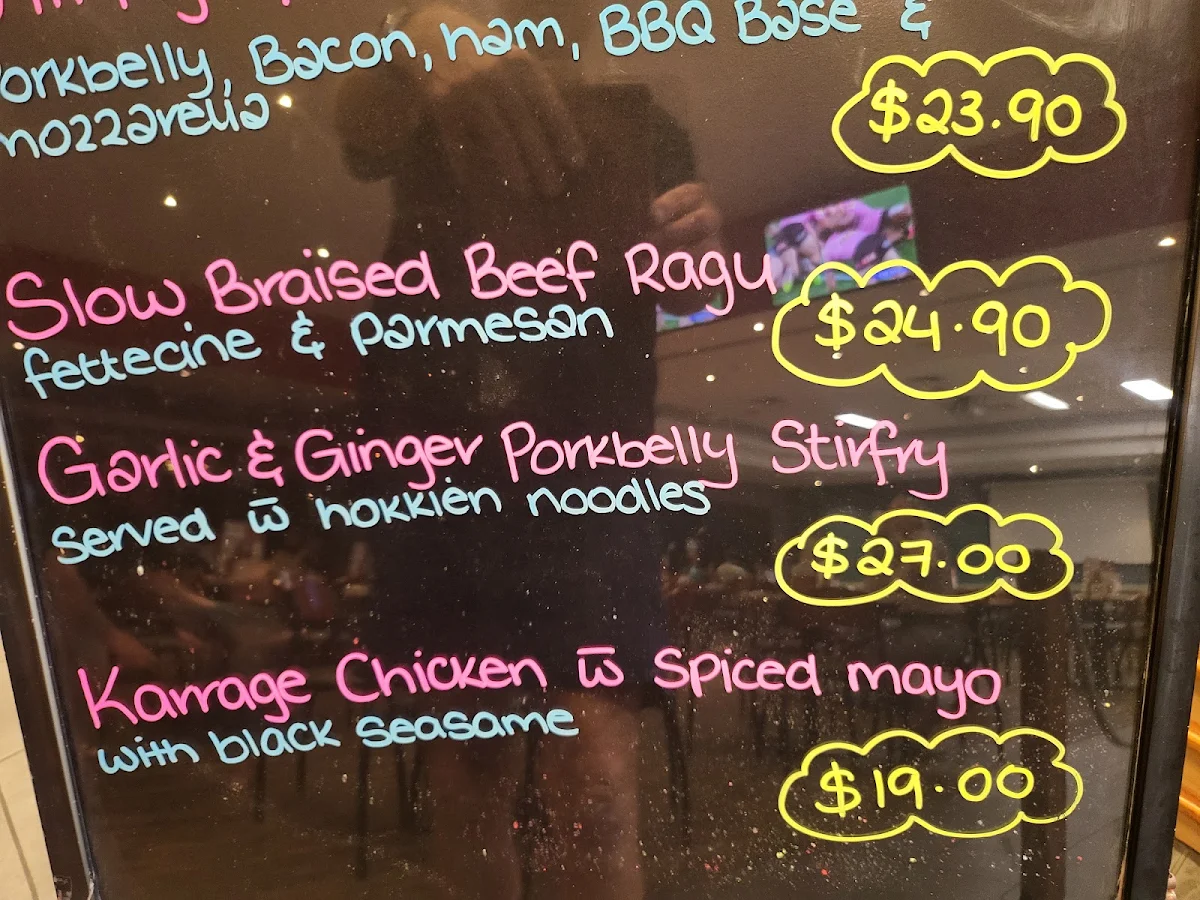 Porkbelly, Bacon, ham, BBQ Base &
mozzarella
$23.90
Slow Braised Beef Ragu
fettecine & Parmesan
$24.90
Garlic & Ginger Porkbelly Stirfry
Served w̅ hokkien noodles
$27.00
Karrage Chicken w̅ Spiced mayo
with black seasame
$19.00